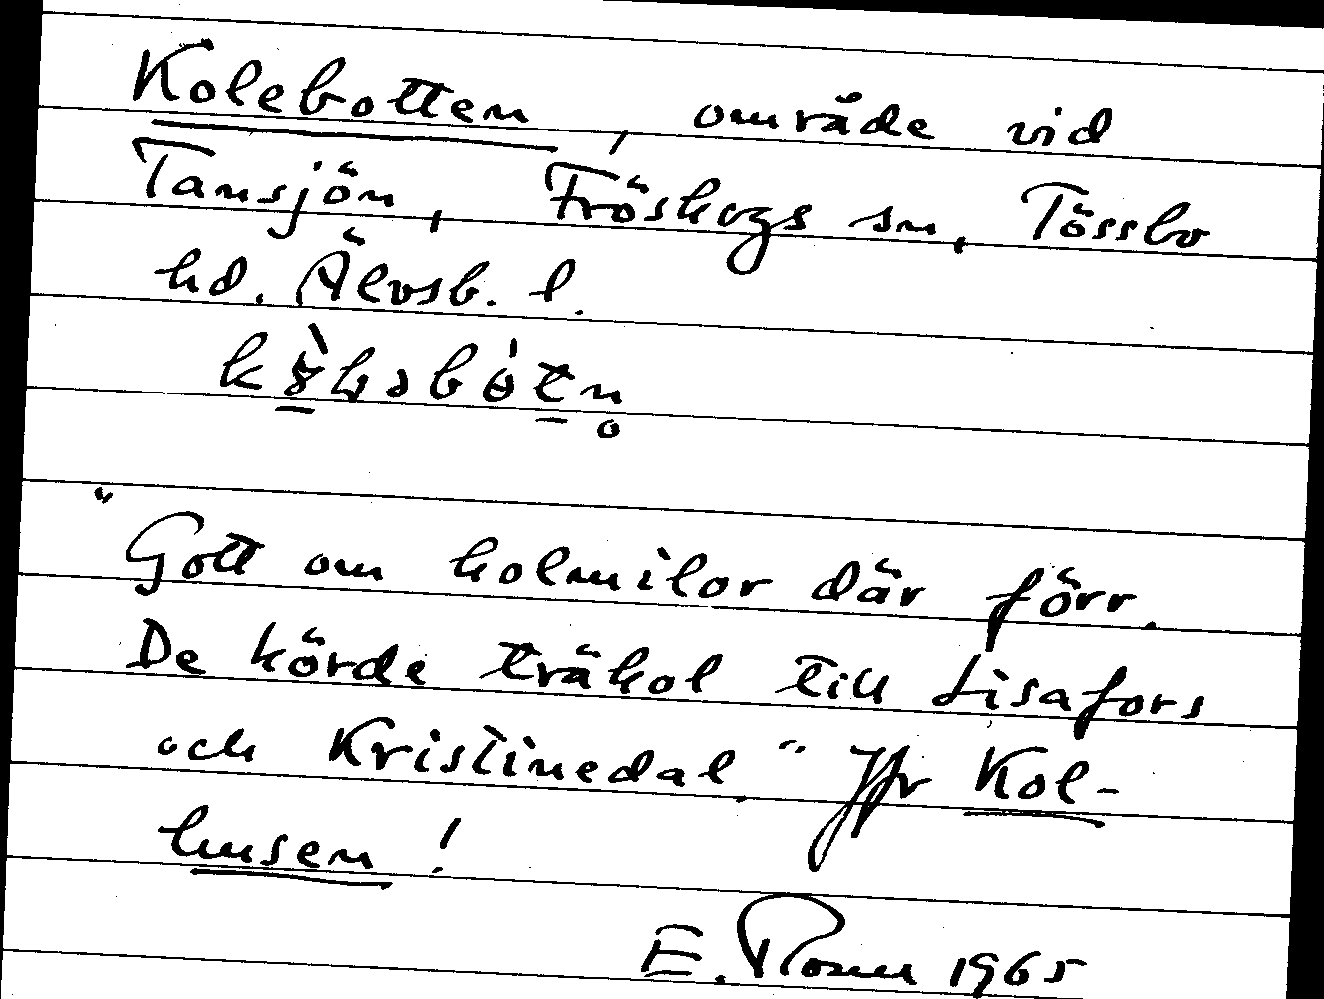 Kolebotten, område vid
Tansjön, Fröskogs sn, Tössbo
hd. Älvsb. l.
"Gott om kolmilor där förr.
De körde träkol till Lisafors
och Kristinedal." Jfr Kol-
husen!
E. 1965